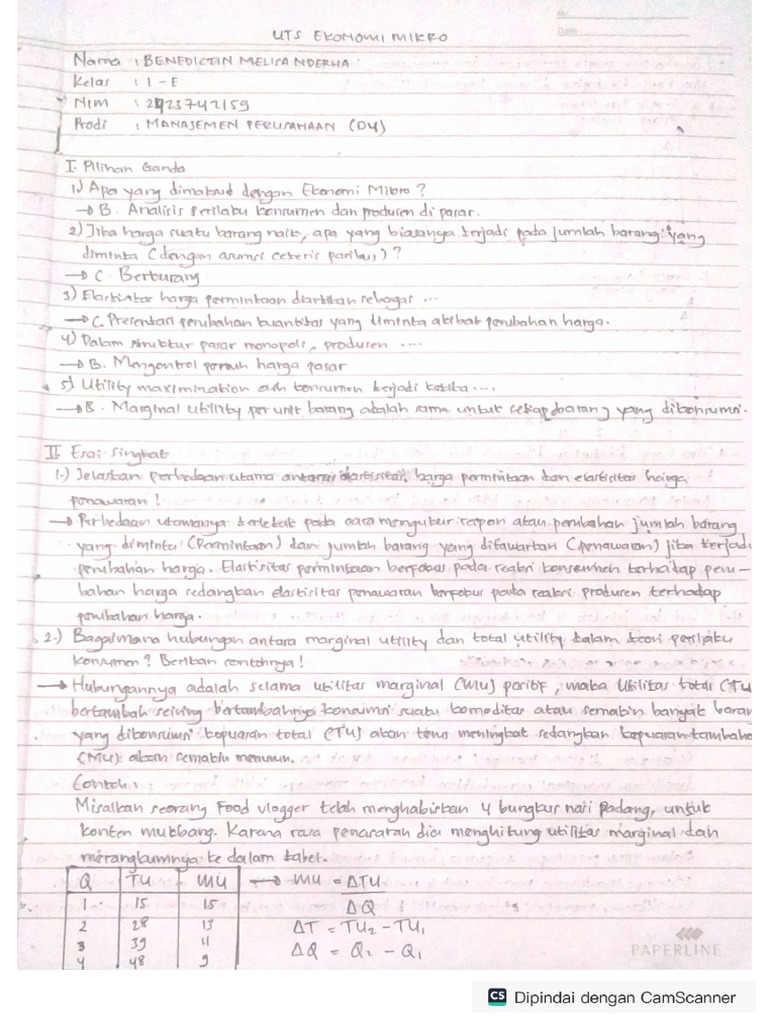 No.
Date
UTS EKONOMI MIKRO
Nama : BENEDICTIN MELISA NDERHA
Kelas : 1 - E
Nim : 2423742159
Prodi : MANAJEMEN PERUSAHAAN (D4)
I. Pilihan Ganda
1.) Apa yang dimaksud dengan Ekonomi Mikro ?
→ B. Analisis Perilaku konsumen dan produsen di pasar.
2) Jika harga suatu barang naik, apa yang biasanya terjadi pada jumlah barang yang
diminta (dengan asumsi ceteris paribus) ?
→ C. Berkurang
3) Elastisitas harga permintaan diartikan sebagai ...
→ C. Presentasi perubahan kuantitas yang diminta akibat perubahan harga.
4) Dalam struktur pasar monopoli, produsen ....
→ B. Mengontrol penuh harga pasar
5) Utility maximization oleh konsumen terjadi ketika ....
→ B. Marginal utility per unit barang adalah sama untuk setiap barang yang dikonsumsi.
II Esai Singkat
1.) Jelaskan perbedaan utama antara elastisitas harga permintaan dan elastisitas harga
penawaran !
→ Perbedaan utamanya terletak pada cara mengukur respon atau perubahan jumlah barang
yang diminta (Permintaan) dan jumlah barang yang ditawarkan (penawaran) jika terjadi
perubahan harga. Elastisitas permintaan berfokus pada reaksi konsumen terhadap peru-
bahan harga sedangkan elastisitas penawaran berfokus pada reaksi produsen terhadap
perubahan harga.
2.) Bagaimana hubungan antara marginal utility dan total utility dalam teori perilaku
konsumen ? Berikan contohnya !
→ Hubungannya adalah selama utilitas marginal (MU) positif, maka Utilitas total (TU
bertambah seiring bertambahnya konsumsi suatu komoditas atau semakin banyak baran
yang dikonsumsi kepuasan total (TU) akan terus meningkat sedangkan kepuasan tambaha
(MU) akan semakin menurun.
Contoh :
Misalkan seorang Food vlogger telah menghabiskan 4 bungkus nasi Padang, untuk
konten mukbang. Karena rasa penasaran dia menghitung utilitas marginal dan
merangkumnya ke dalam tabel.
Q TU MU → MU = ΔTU
1 15 15 ΔQ
2 28 13 ΔT = TU2 - TU1
3 39 11 ΔQ = Q2 - Q1
4 48 9
PAPERLINE
CS Dipindai dengan CamScanner